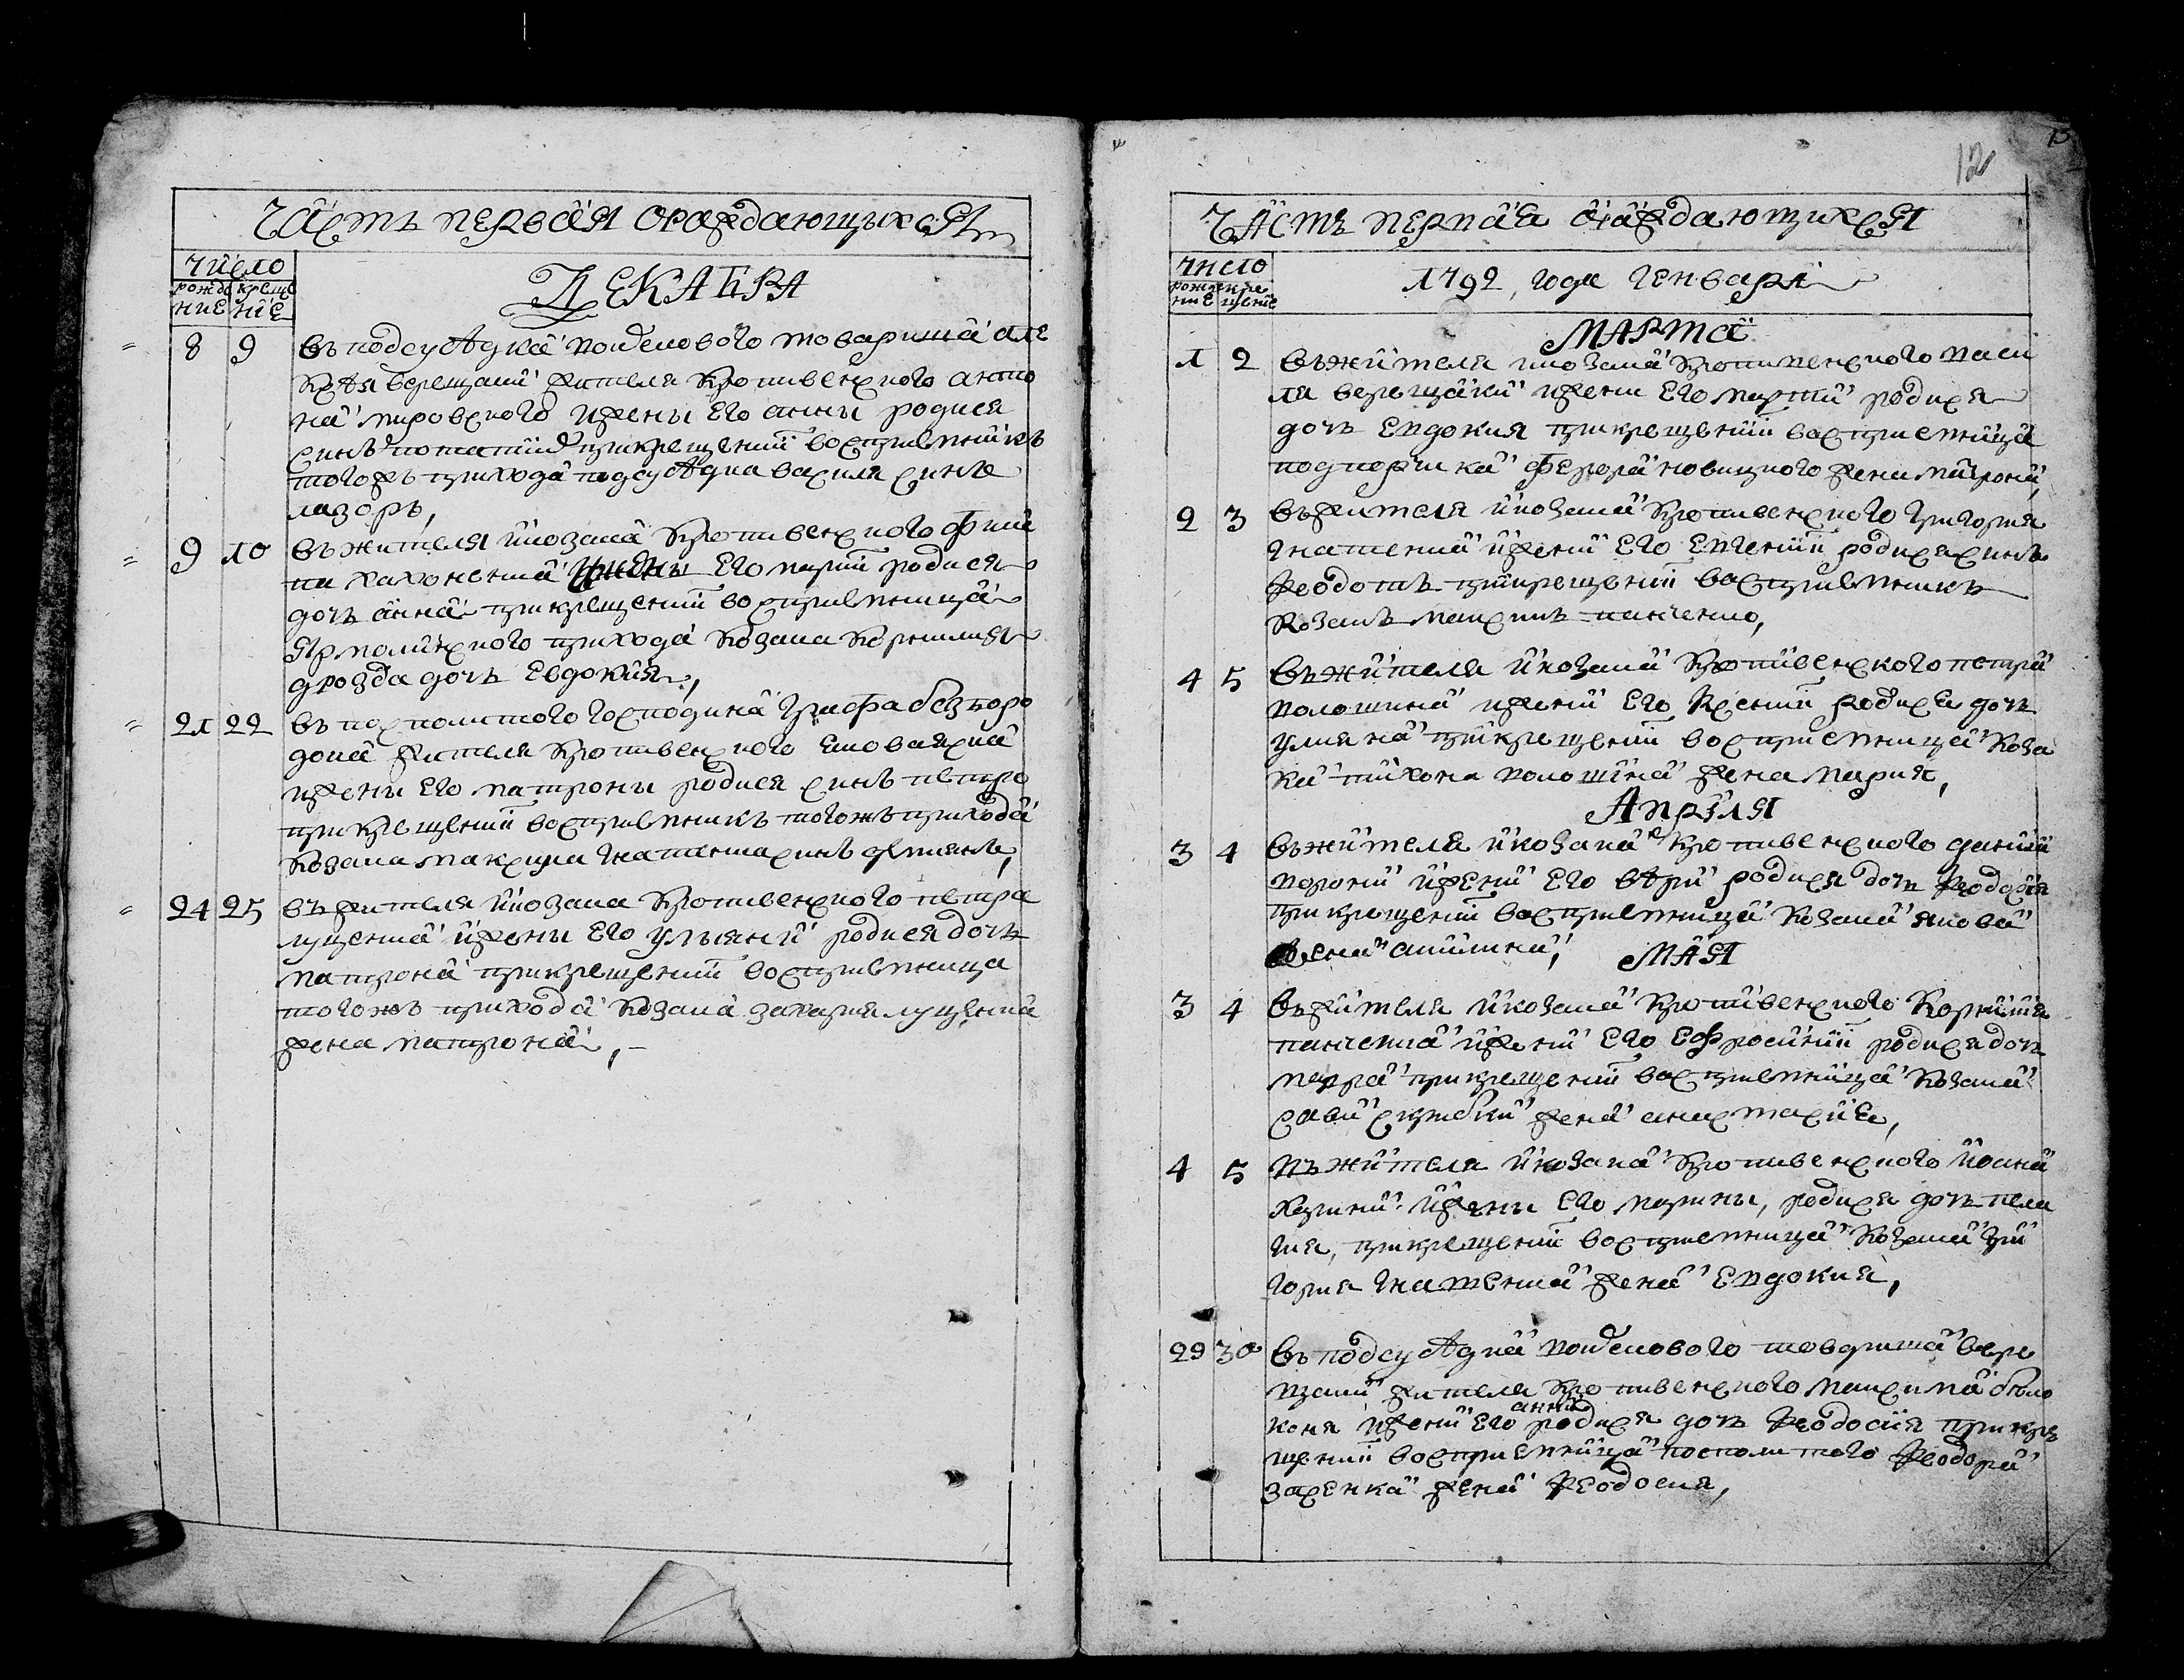 Часть первая ораждающыхся
Число
рожде креще
ние ние
ДЕКАБРА
8 9 въ подсуѣдка войскового товариша але
ксѣя верещаки жителя Кропивенского анто
на мировского ижены Его анны родися
синъ потапий прикрещении восприемникъ
тогожъ прихода подсуѣдка василя синъ
лазоръ,
9 10 въ жителя икозака Кропивенского фили
па хахоненка ижены Его марии родися
дочъ анна прикрещении восприемница
Ярмолинского прихода Козака Корнилия
дрозда дочъ Евдокия,
21 22 въ посполитого господина графа безборо
дка жителя Кропивенского
ижены Его матроны родися синъ петро
прикрещении восприемникъ тогожъ прихода
Козака максима гнатенка синъ демянъ,
24 25 въ жителя икозака Кропивенского петра
луценка ижены Его ульяни родися дочъ
матрона прикрещении восприемница
тогожъ прихода Козака захария луценка
жена матрона,
12
15
Часть первая ораждающихся
Число
рожде кре
ние щение
1792, года Генваря
МАРТА
1 2 въ жителя икозака Кропивенского васи
ля верещаки ижени Его марти родися
дочъ Евдокия прикрещении восприемница
подпорчика Федора новицкого жена матрона,
2 3 въ жителя икозака Кропивенского Григория
гнатенка ижени Его Евгении родися синъ
Феодотъ прикрещении восприемникъ
Козакъ максимъ панченко,
4 5 въ жителя икозака Кропивенского петра
волошина ижени Его Ксении родися дочъ
улияна прикрещении восприемница Коза
ка тихона волошина жена мария,
Априля
3 4 въ жителя икозака Кропивенского данила
ворони ижени Его вѣри родися дочъ Феодосия
прикрещении восприемница Козака якова
жена акилина, МАЯ
3 4 въ жителя икозака Кропивенского Корнилия
панченка ижени Его Ефросинии родися дочъ
мавра прикрещении восприемница Козака
сави скрибки жена анастасия,
4 5 въ жителя икозака Кропивенского иоана
ижены Его марины, родися дочъ пела
гия, прикрещении восприемница Козака гри
гория гнатенка жена Евдокия,
29 30 въ подсуѣдка войскового товариша вере
щаки жителя Кропивенского максима бѣло
коня ижени Его анни родися дочъ Феодосия прикре
щении восприемница посполитого Феодора
засенка жена Феодосия,